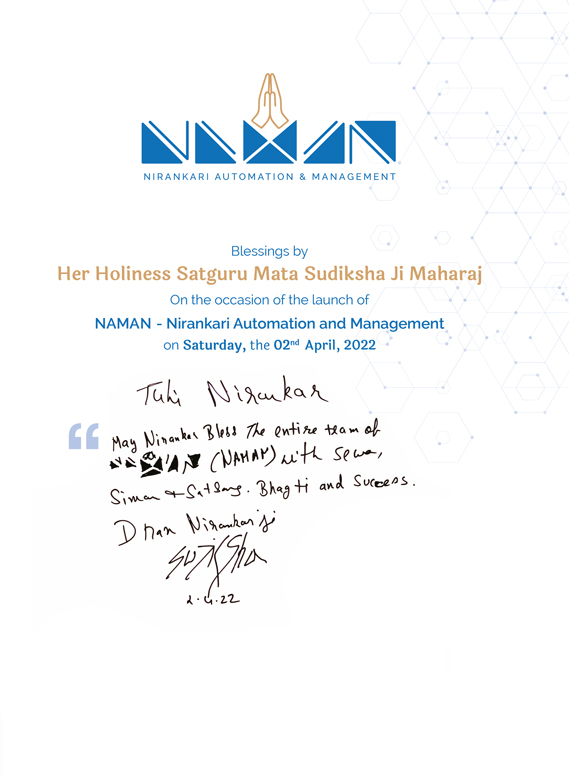 NAMAN
NIRANKARI AUTOMATION & MANAGEMENT
Blessings by
Her Holiness Satguru Mata Sudiksha Ji Maharaj
On the occasion of the launch of
NAMAN - Nirankari Automation and Management
on Saturday, the 02nd April, 2022
Tuhi Nirankar
“
May Nirankar Bless The entire team of
NAMAN (NAMAN) with sewa,
Simran & Satsang. Bhagti and Success.
Dhan Nirankar ji
Sudiksha
2.4.22